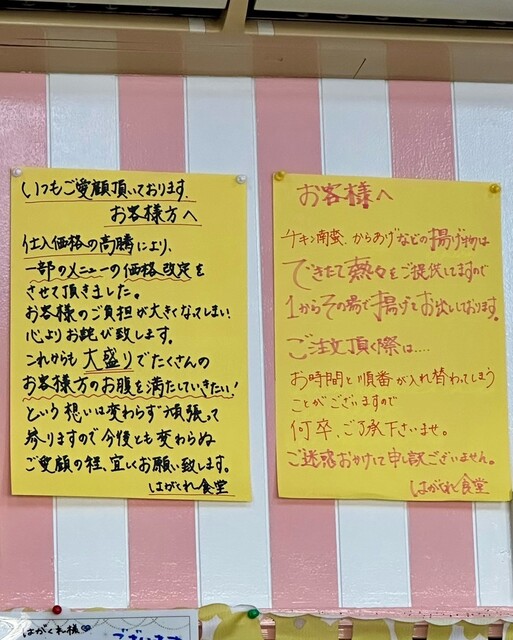 いつもご愛顧頂いております。
お客様方へ
仕入価格の高騰により、
一部のメニューの価格改定を
させて頂きました。
お客様のご負担が大きくなってしまい
心よりお詫び致します。
これからも大盛りでたくさんの
お客様方のお腹を満たしていきたい!
という想いは変わらず頑張って
参りますので今後とも変わらぬ
ご愛顧の程、宜しくお願い致します。
はがくれ食堂
お客様へ
チキン南蛮、からあげなどの揚げ物は
できたて熱々をご提供してますので
1からその場で揚げてお出ししております。
ご注文頂く際は....
お時間と順番が入れ替わってしまう
ことがございますので
何卒、ご了承下さいませ。
ご迷惑おかけして申し訳ございません。
はがくれ食堂
はがくれ様
ございます